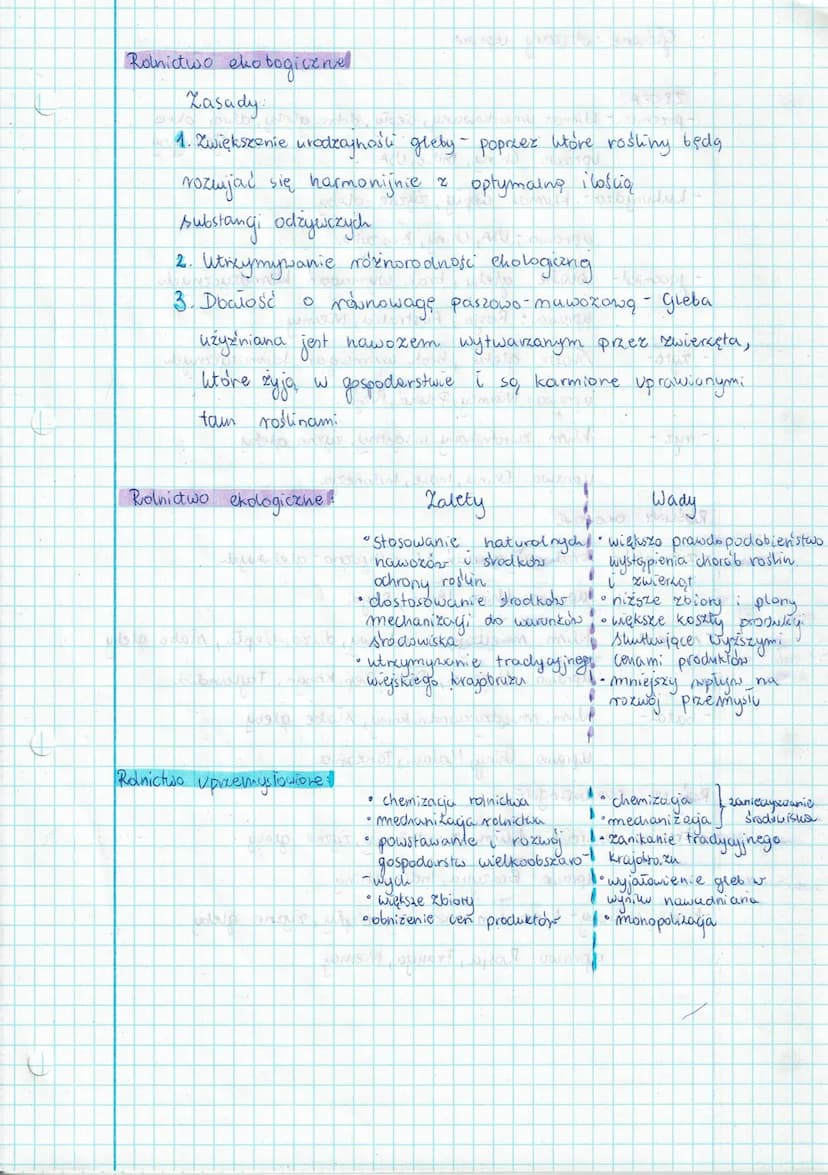 Rolnictwo ekologiczne
Zasady:
1. Zwiększenie urodzajności gleby - poprzez które rośliny będą
rozwijać się harmonijnie z optymalną ilością
substancji odżywczych
2. Utrzymywanie różnorodności ekologicznej
3. Dbałość o równowagę paszowo-nawozową - Gleba
użyźniana jest nawozem wytwarzanym przez zwierzęta,
które żyją w gospodarstwie i są karmione uprawianymi
tam roślinami
Rolnictwo ekologiczne:
Zalety
• stosowanie naturalnych
nawozów i środków
ochrony roślin
• dostosowanie środków
mechanizacji do warunków
środowiska
• utrzymywanie tradycyjnego
wiejskiego krajobrazu
Wady
• większe prawdopodobieństwo
wystąpienia chorób roślin
i zwierząt
• niższe zbiory i plony
• większe koszty produkcji
skutkujące wyższymi
cenami produktów
• mniejszy wpływ na
rozwój przemysłu
Rolnictwo uprzemysłowione:
• chemizacja rolnictwa
• mechanizacja rolnictwa
• powstawanie i rozwój
gospodarstw wielkoobszaro-
-wych
• większe zbiory
• obniżenie cen produktów
• chemizacja } zanieczyszczanie
• mechanizacja } środowiska
• zanikanie tradycyjnego
krajobrazu
• wyjałowienie gleb w
wyniku nawadniania
• monopolizacja